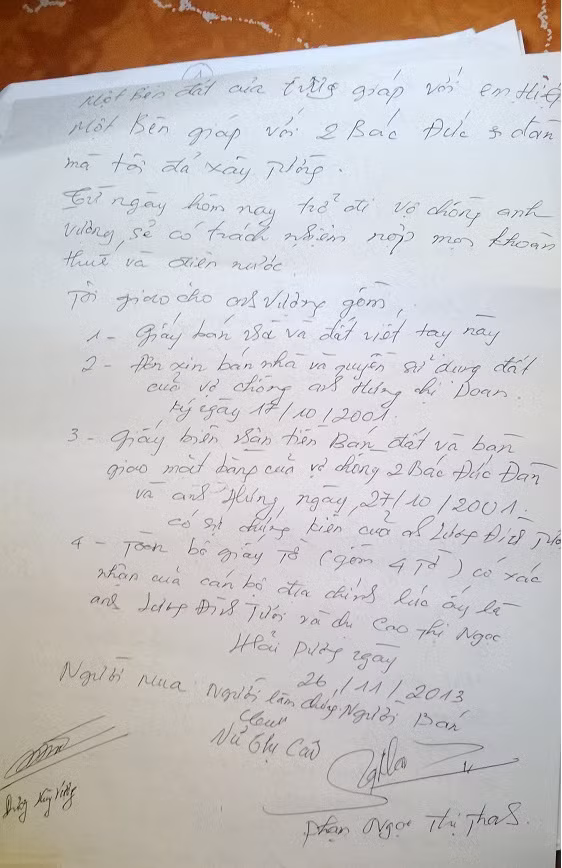 Một Bên đất của trung giáp với em Hiệ
Một Bên giáp với 2 Bác Đức & đàn
mà tôi đã xây tường.
Từ ngày hôm nay trở đi vợ chồng anh
Vường, sẽ có trách nhiệm nộp mọi khoản
thuế, và điện nước.
Tôi giao cho anh Vường gồm,
1 - Giấy bán nhà và đất viết tay này
2 - Đơn xin bán nhà và quyền sử dụng đất
của vợ chồng anh Hưng chị Doan.
ký ngày 17/10/2001.
3 - Giấy biên nhận tiền Bán đất và bàn
giao mặt bằng của vợ chồng 2 Bác Đức Đàn
và anh Hưng ngày, 27/10/2001.
có sự chứng kiến của anh Lương Đình Tưở
4 - Toàn bộ giấy tờ (gồm 4 Tờ) có xác
nhận của cán bộ địa chính lúc ấy là
anh Lương Đình Tưới và chị Cao Thị Ngọc
Hải Dương ngày
26/11/2013
Người mua Người làm chứng Người Bán
Phạn Ngọc Thị Thanh.